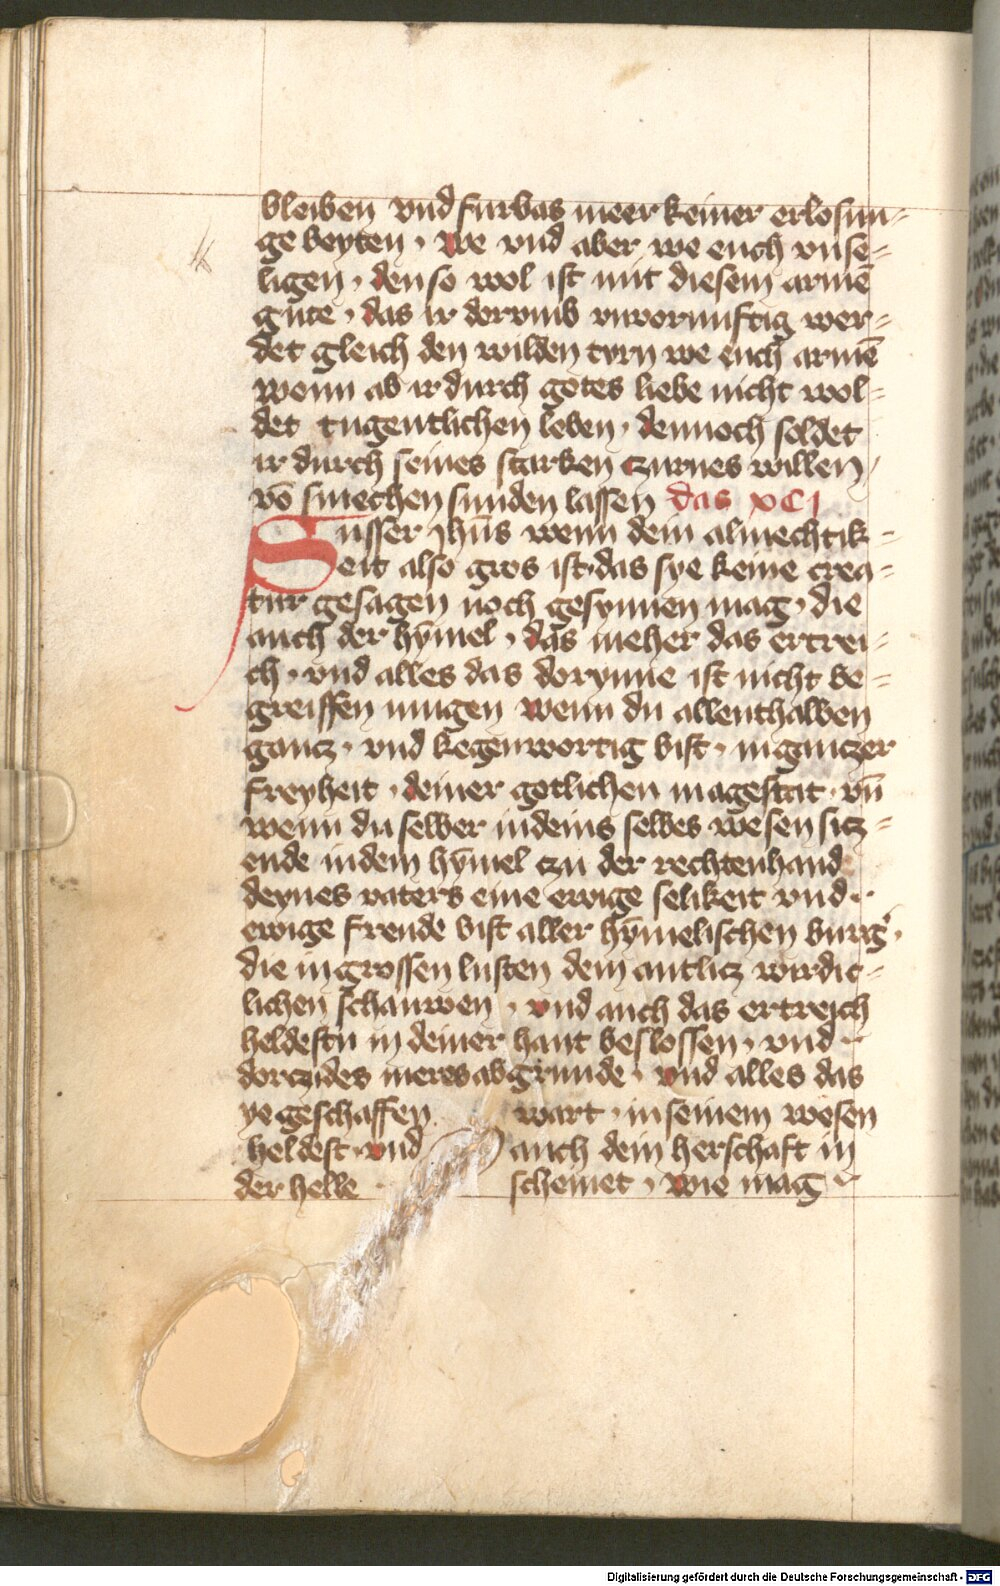 bleiben vnd furbas meer keiner erlosun-
ge beyten · we vnd aber we euch vnse-
ligen · den so wol ist mit diesem armē
gute · das ir dorvmb vnvornuftig wer-
det gleich den wilden tyrn we euch armē
wenn ab ir durch gotes liebe nicht wol-
det tugentlichen leben · dennoch soldet
ir durch seines starken czurnes willen
vō smechen sunden lassen das xCJ
Susser jhūs wenn dein almechtik-
eit also gros ist · das sye keine crea-
tur gesagen noch gesynnen mag · die
auch der hȳmel · das meher das ertrei-
ch · vnd alles das dorynne ist nicht be-
greiffen mugen wenn du allenthalben
gancz · vnd kegenwortig bist · in ganczer
freyheit · deiner gotlichen magestat · vn̄
wenn du selber in deins selbes wesen sicz-
ende in dem hȳmel czu der rechtenhand
deynes vaters eine ewige selikeit vnd
ewige freude bist aller hȳmelischen burg̾ ·
die in grossen lusten dein antlicz wirdic-
lichen schauwen · vnd auch das ertreich
heldestu in deiner hant beslossen · vnd
dorczu des meres abgrunde · vnd alles das
ye geschaffen wart · in seinem wesen
heldest · vnd auch dein herschaft in
der helle · scheinet · wie mag
Digitalisierung gefördert durch die Deutsche Forschungsgemeinschaft - DFG